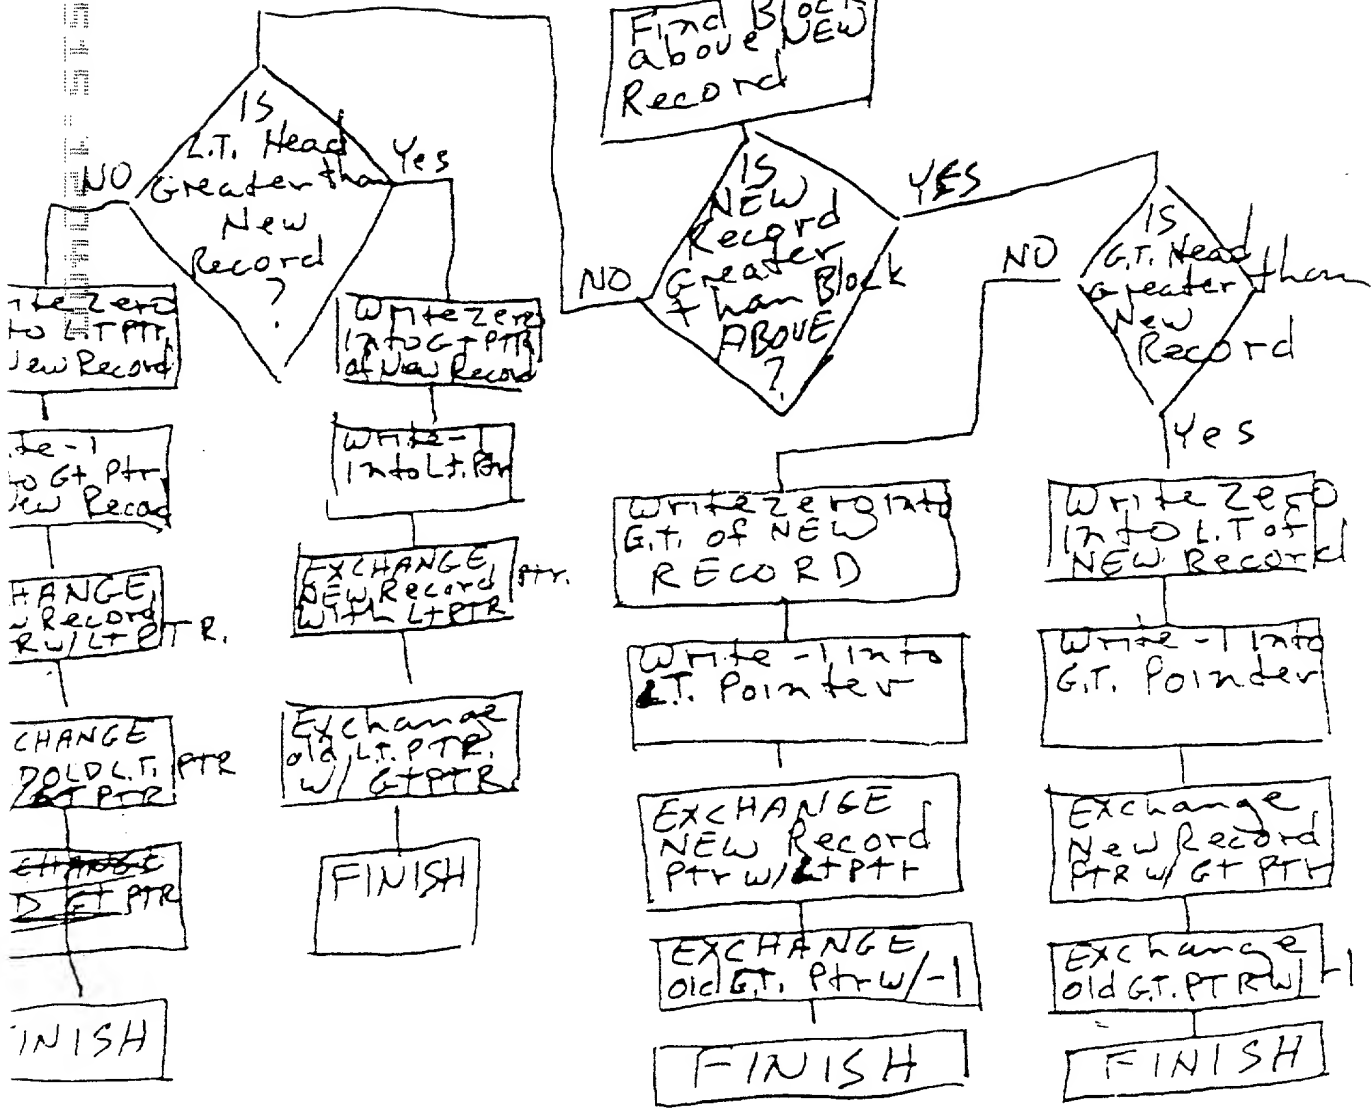 Find Block
above NEW
Record
IS
L.T. Head
Greater than
New
Record
?
NO
Yes
IS
NEW
Record
Greater
than Block
ABOVE
?
NO
YES
IS
G.T. Head
Greater than
New
Record
NO
Yes
rite Zero
to L.T PTR
New Record
te -1
to Gt Ptr
ew Recod
HANGE
Record
R w/ Lt PTR.
CHANGE
OLD L.T. PTR
GT PTR
CHANGE
D Gt PTR
INISH
Write Zero
Into Gt PTR
of New Record
Write -1
Into Lt. Ptr
EXCHANGE
NEW Record Ptr.
With Lt PTR
Exchange
old L.T. PTR.
w/ Gt PTR
FINISH
Write Zero Into
G.T. of NEW
RECORD
Write -1 Into
L.T. Pointer
EXCHANGE
NEW Record
Ptr w/ Lt Ptr
EXCHANGE
old G.T. Ptr w/ -1
FINISH
Write Zero
Into L.T of
NEW Record
Write -1 Into
G.T. Pointer
Exchange
New Record
PTR w/ GT Ptr
Exchange
old G.T. PTR w/ -1
FINISH